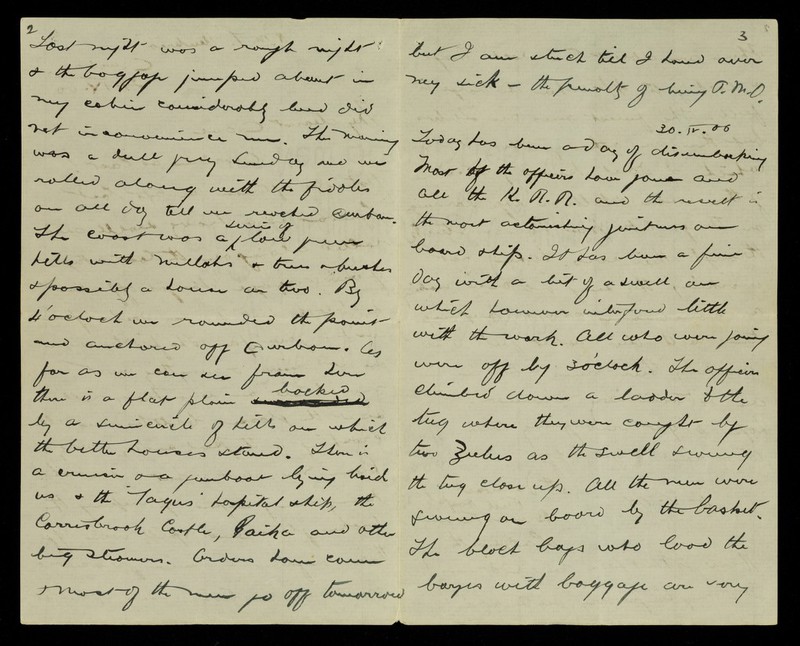 2
Last night was a rough night
& the baggage jumped about in
my cabin considerably but did
not inconvenience me. The morning
was a dull grey Sunday and we
rolled along with the fiddles
on all day till we reached Durban.
The coast was a series of low green
hills with nullahs & trees & bushes
& possibly a house or two. By
4 o'clock we rounded the point
and anchored off Durban. As
far as we can see from here
there is a flat plain backed
by a semicircle of hills on which
the better houses stand. There is
a cruiser or a gunboat lying beside
us & the 'Tagus' hospital ship, the
Carrisbrook Castle, Gaika and other
big steamers. Orders have come
& most of the men go off tomorrow
3
but I am stuck till I hand over
my sick – the penalty of being P.M.O.
30.IV.00
Today has been a day of disembarking
Most of the officers have gone and
all the K.R.R. and the result is
the most astonishing quietness on
board ship. It has been a fine
day with a bit of a swell on
which however interfered little
with the work. All who were going
were off by 3 o'clock. The officers
climbed down a ladder to the
tug where they were caught by
two Zulus as the swell swung
the tug close up. All the men were
swung on board by the basket.
The black boys who load the
barges with baggage are very